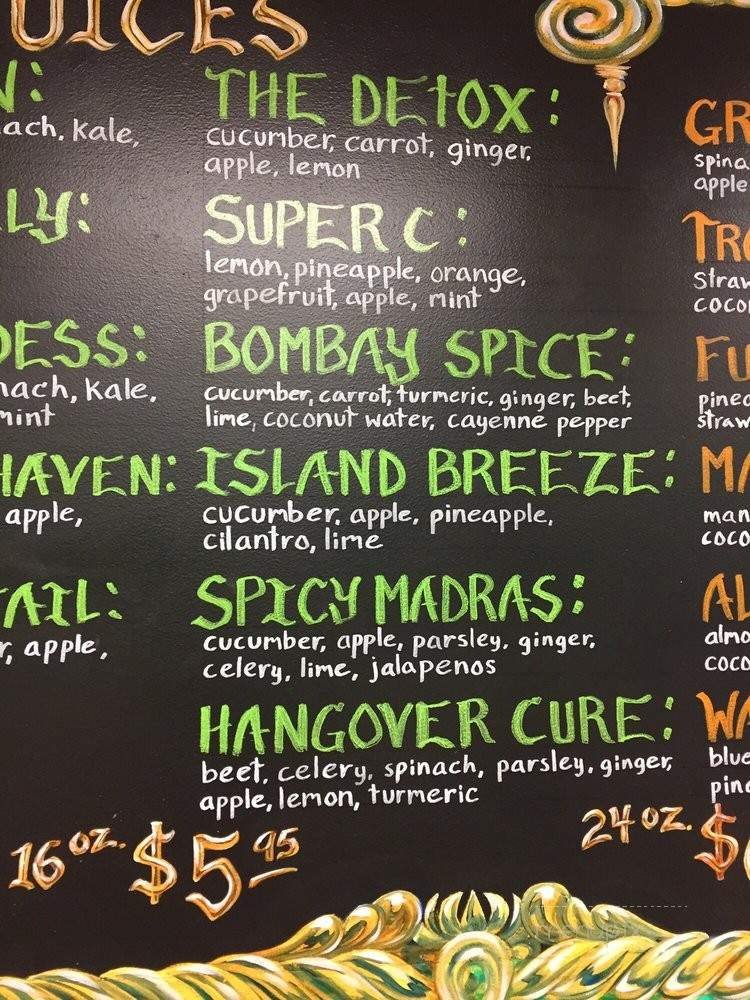 UICES
N:
ach, kale,
LY:
DESS:
nach, kale,
mint
HAVEN:
apple,
AIL:
r, apple,
THE DETOX:
cucumber, carrot, ginger,
apple, lemon
SUPER C:
lemon, pineapple, orange,
grapefruit, apple, mint
BOMBAY SPICE:
cucumber, carrot, turmeric, ginger, beet,
lime, coconut water, cayenne pepper
ISLAND BREEZE:
cucumber, apple, pineapple,
cilantro, lime
SPICY MADRAS:
cucumber, apple, parsley, ginger,
celery, lime, jalapenos
HANGOVER CURE:
beet, celery, spinach, parsley, ginger,
apple, lemon, turmeric
GR
spina
apple
TRO
straw
coco
FU
pinea
straw
MA
man
coco
AL
almo
coco
WA
blue
pine
16 oz. $5 95
24 oz. $